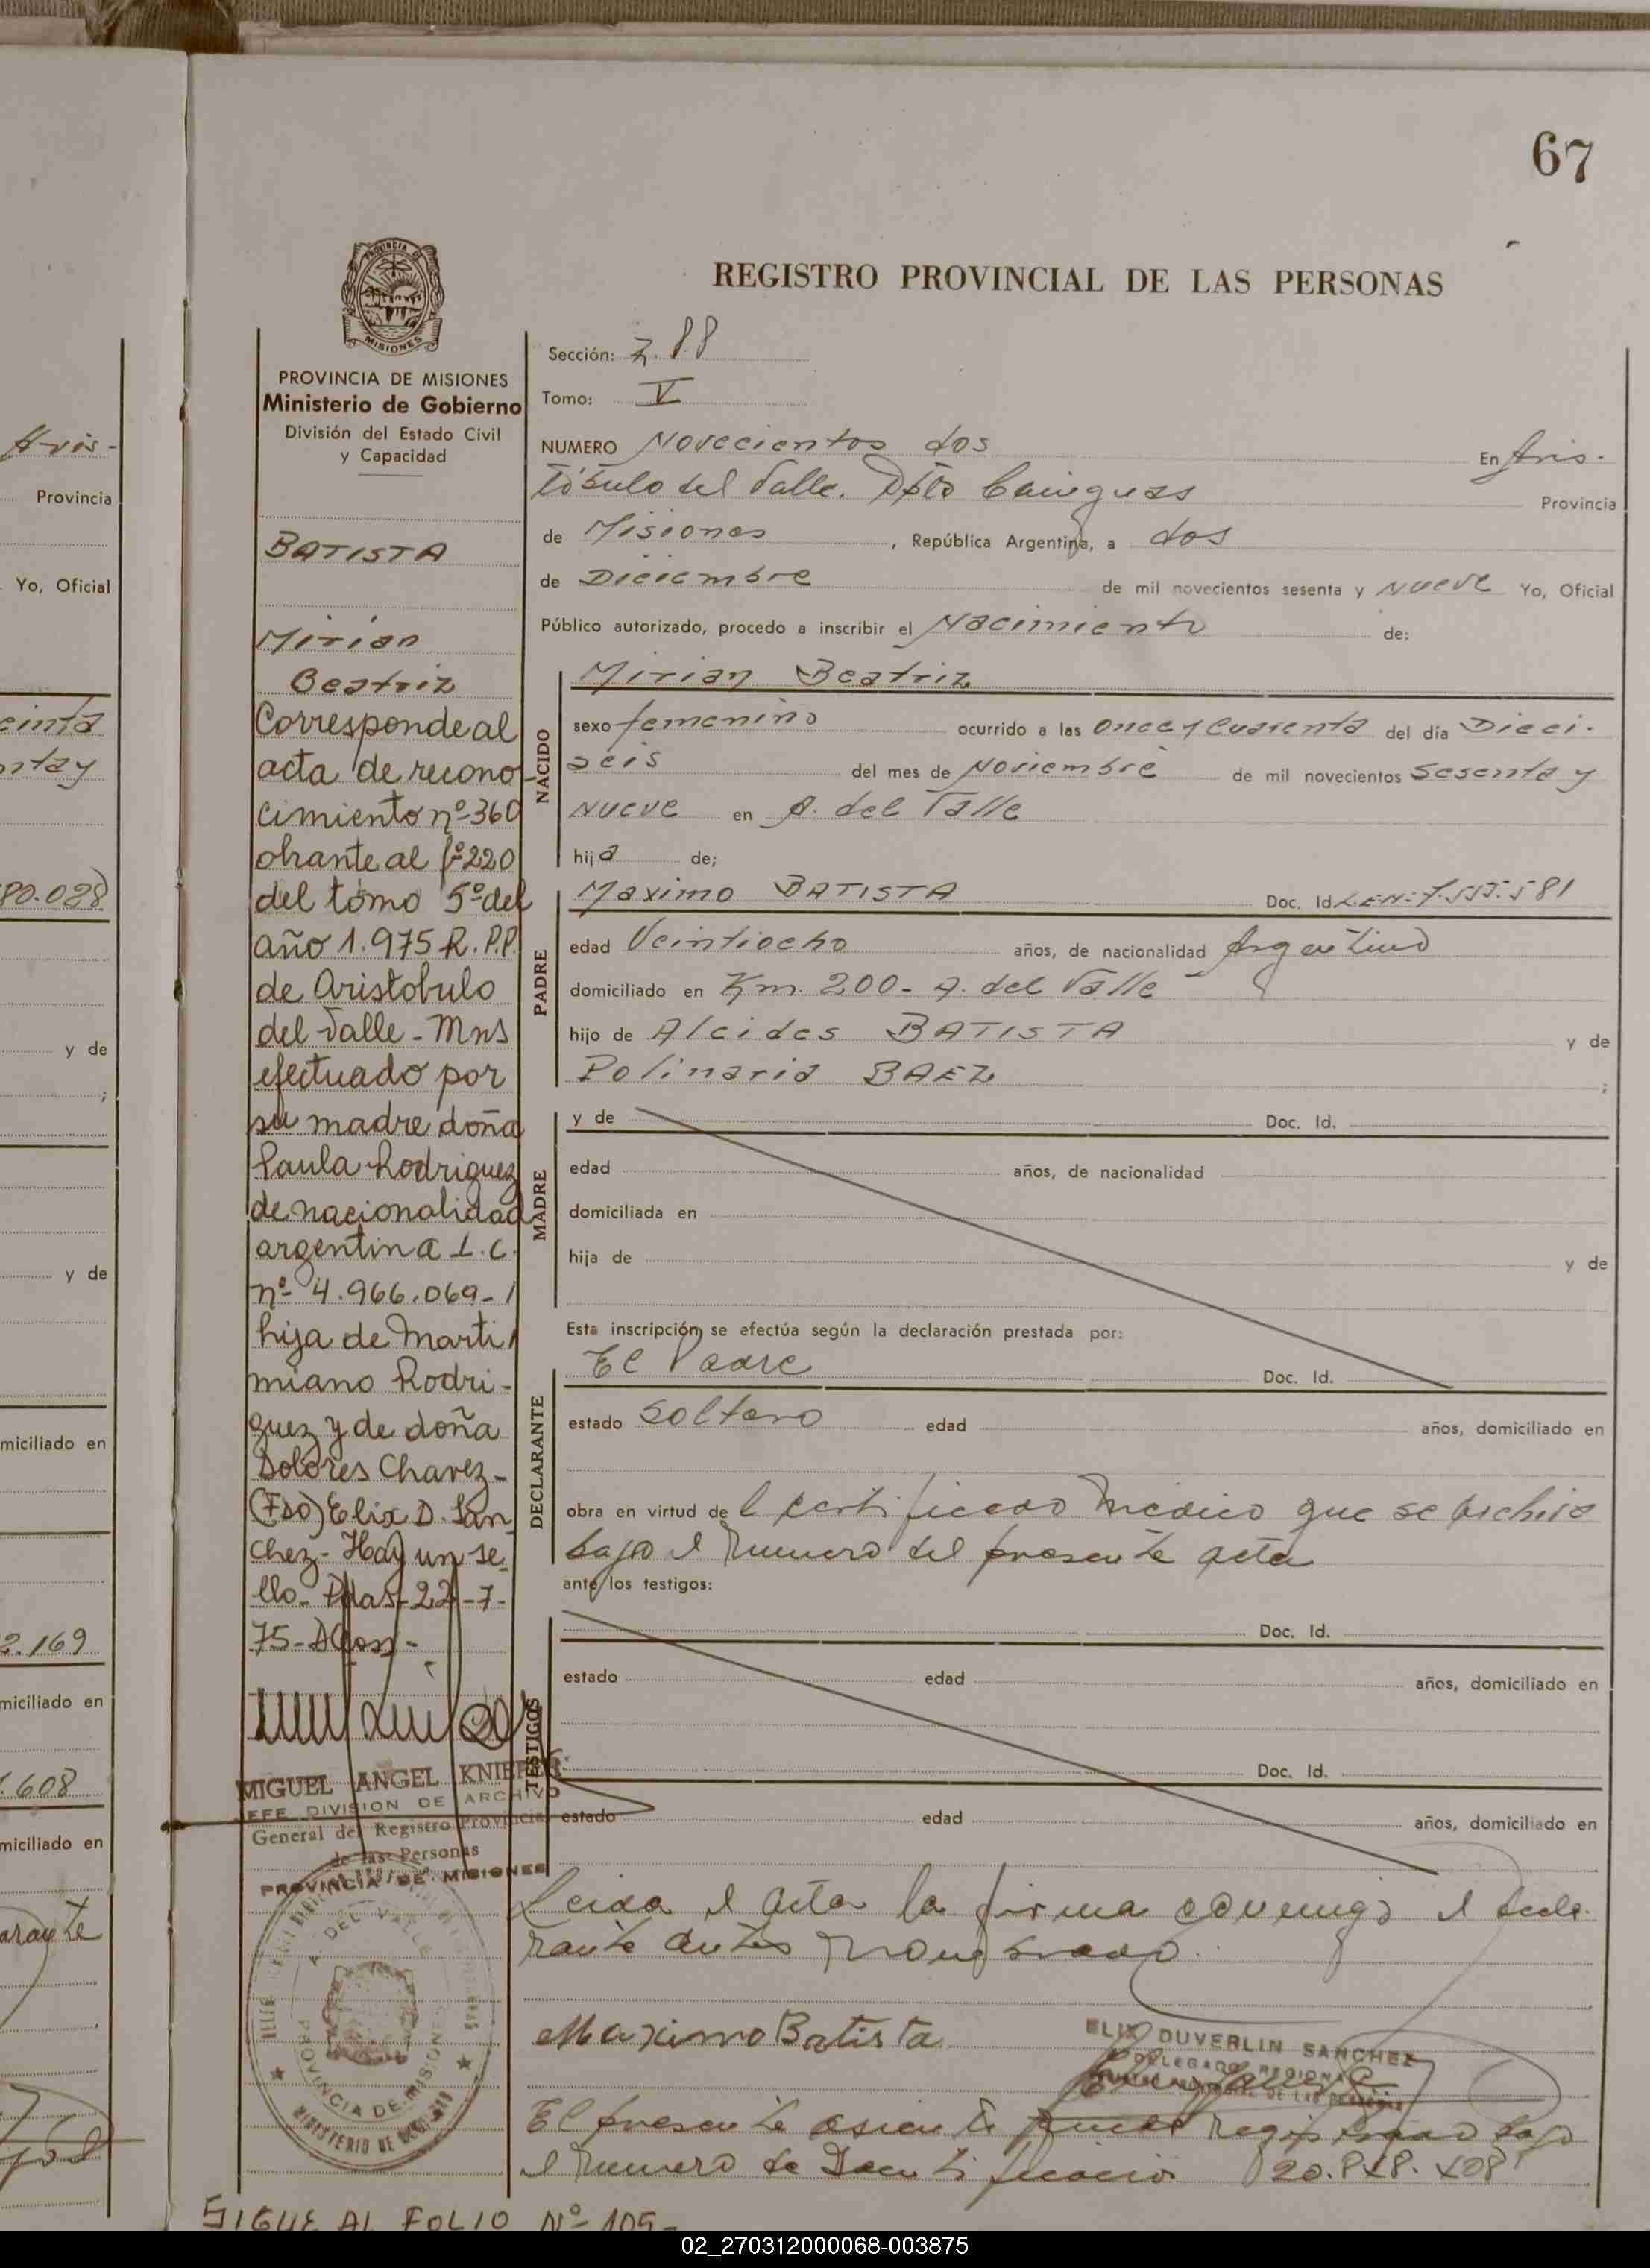 67
REGISTRO PROVINCIAL DE LAS PERSONAS
PROVINCIA
MISIONES
PROVINCIA DE MISIONES
Ministerio de Gobierno
División del Estado Civil
y Capacidad
BATISTA
Mirian
Beatriz
Corresponde al
acta de recono-
cimiento nº 360
obrante al fº 220
del tomo 5º del
año 1.975 R.P.P.
de Aristobulo
del Valle - Mns
efectuado por
su madre doña
Paula Rodriguez
de nacionalidad
argentina L.C.
nº 4.966.069-
hija de Marti
miano Rodri-
guez y de doña
Dolores Chavez-
(FDO) Elix D. San
chez- Hay un se-
llo- Pdas-22-7-
75-
MIGUEL ANGEL
JEFE DIVISION DE ARCHIVO
General del Registro Provincial
de las Personas
PROVINCIA DE MISIONES
A. DEL VALLE
PROVINCIA DE MISIONES
MINISTERIO DE GOBIERNO
Sección: 2.88
Tomo: V
NUMERO Novecientos dos En Aris-
tóbulo del Valle. Dpto Cainguas Provincia
de Misiones, República Argentina, a dos
de Diciembre de mil novecientos sesenta y nueve Yo, Oficial
Público autorizado, procedo a inscribir el Nacimiento de:
NACIDO
Mirian Beatriz
sexo femenino ocurrido a las once y cuarenta del día Dieci-
seis del mes de Noviembre de mil novecientos sesenta y
nueve en A. del Valle
hija de;
PADRE
Maximo BATISTA Doc. Id. L.EN: 7.555.581
edad Veintiocho años, de nacionalidad Argentino
domiciliado en Km. 200- A. del Valle
hijo de Alcides BATISTA y de
Polinaria BAEZ ;
MADRE
y de Doc. Id.
edad años, de nacionalidad
domiciliada en
hija de y de
Esta inscripción se efectúa según la declaración prestada por:
DECLARANTE
El Padre Doc. Id.
estado soltero edad años, domiciliado en
obra en virtud de l certificado Médico que se archiva
bajo el numero del presente acta
ante los testigos:
TESTIGOS
Doc. Id.
estado edad años, domiciliado en
Doc. Id.
estado edad años, domiciliado en
Leida el acta la firma conmigo el decla-
rante antes nombrado.
Maximo Batista
ELIX DUVERLIN SANCHEZ
DELEGADO REGIONAL
El presente asiento registrado bajo
el numero de Identificacion 20.
SIGUE AL FOLIO Nº 105-
Aris-
Provincia
Yo, Oficial
y de
;
y de
miciliado en
2.169
miciliado en
.608
miciliado en
02_270312000068-003875